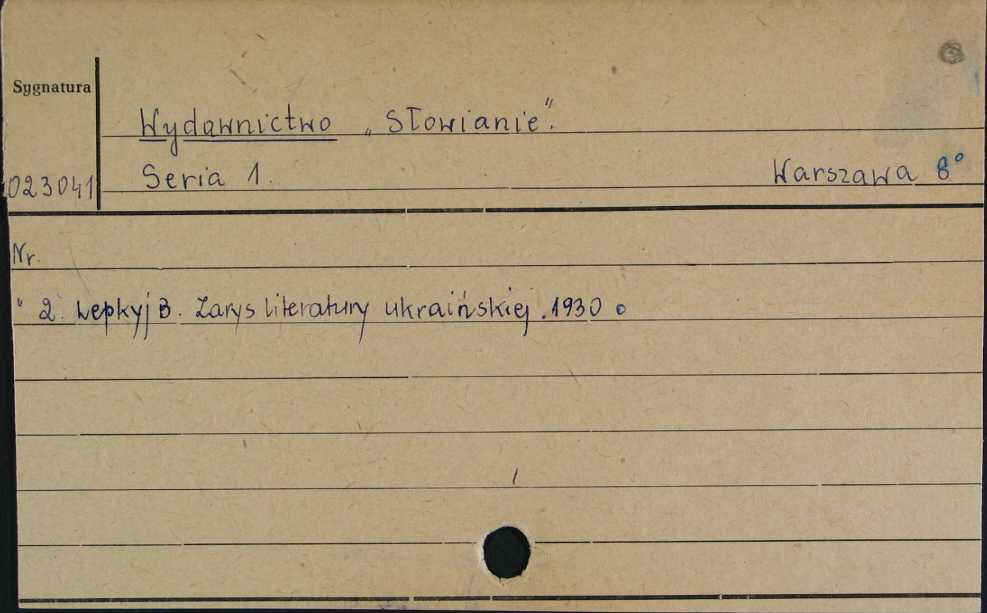 Sygnatura
Wydawnictwo „Słowianie".
023041 Seria 1. Warszawa 8°
Nr.
" 2. Łepkyj B. Zarys literatury ukraińskiej. 1930 o